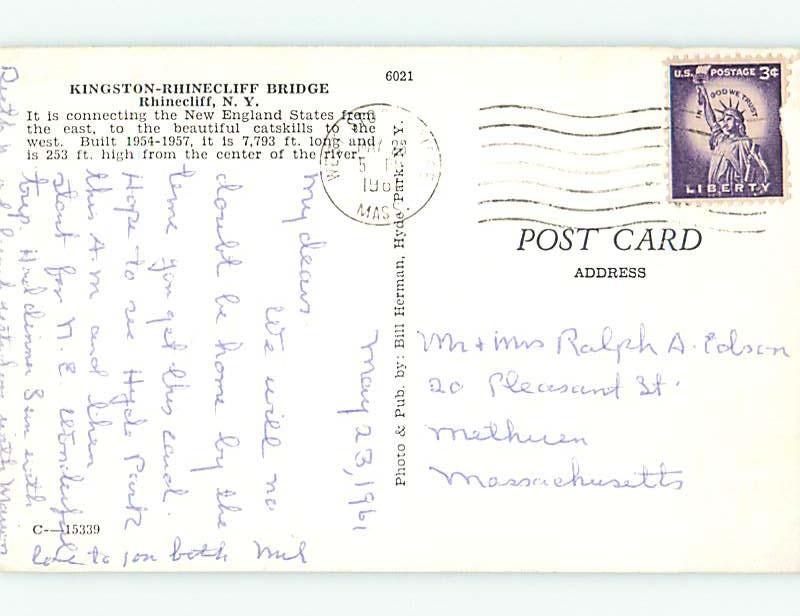 6021
KINGSTON-RHINECLIFF BRIDGE
Rhinecliff, N. Y.
It is connecting the New England States from
the east, to the beautiful catskills to the
west. Built 1954-1957, it is 7,793 ft. long and
is 253 ft. high from the center of the river.
May 23, 1961
My dears.
We will no
doubt be home by the
time you get this card.
Hope to see Hyde Park
this A.M and then
start for N.E. Wonderful
trip. Had dinner Sun with
with Marion
love to you both
C—15339
Photo & Pub. by: Bill Herman, Hyde Park, N. Y.
MASS
U.S. POSTAGE 3¢
IN GOD WE TRUST
LIBERTY
POST CARD
ADDRESS
Mr + Mrs Ralph A. Edson
20 Pleasant St.
Methuen
Massachusetts